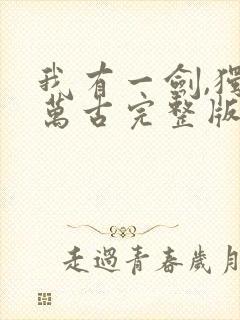 我有一劍,獨
萬古完整版
走過青春歲月